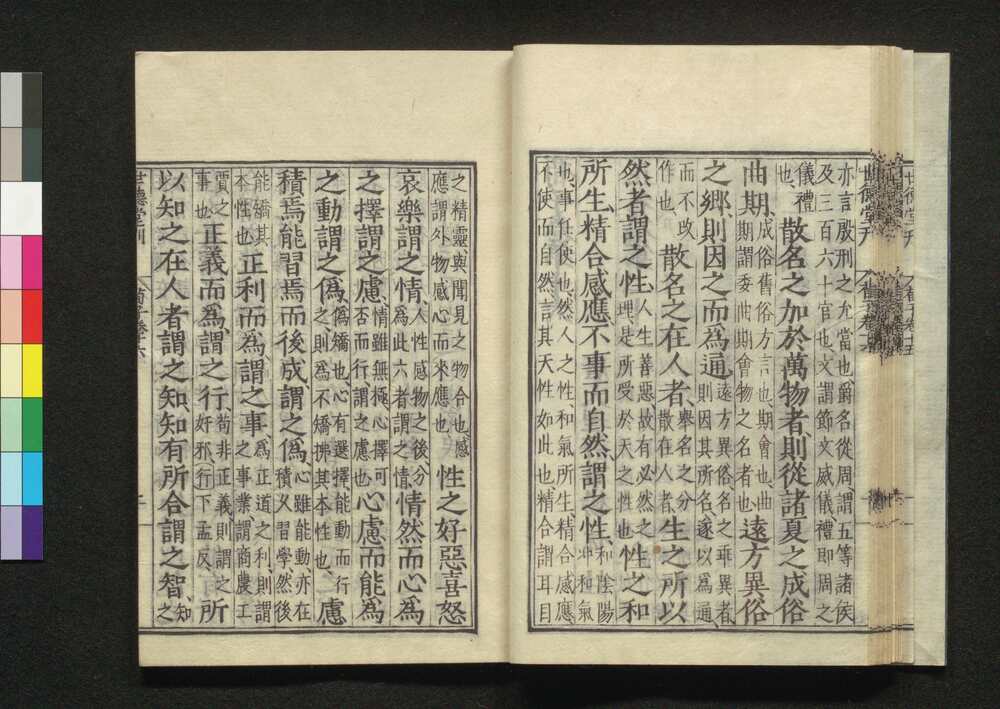 亦言殷刑之允當也爵名從周謂五等諸侯
及三百六十官也文謂節文威儀禮即周之
儀禮
也、
散名之加於萬物者則從諸夏之成俗
曲期、
成俗舊俗方言也期會也曲
期謂委曲期會物之名者也
遠方異俗
之鄉則因之而爲通、
遠方異俗名之乖異者、
則因其所名遂以爲通
而不改
作也、
散名之在人者、
舉名之分
散在人者
生之所以
然者謂之性、
人生善惡故有必然之
理是所受於天之性也
性之和
所生精合感應不事而自然謂之性、
和陰陽
冲和氣
也事任使也然人之性和氣所生精合感應、
不使而自然言其天性如此也精合謂耳目
之精靈與聞見之物合也感
應謂外物感心而來應也
性之好惡喜怒
哀樂謂之情、
人性感物之後分
爲此六者謂之情、
情然而心爲
之擇謂之慮、
情雖無極心擇可
否而行謂之慮也
心慮而能爲
之動謂之僞、
僞矯也心有選擇能動而行
之、則爲不矯拂其本性也、
慮
積焉能習焉而後成謂之僞、
心雖能動亦在
積久習學然後
能矯其
本性也
正利而爲謂之事、
爲正道之利則謂
之事業謂商農工
賈之
事也
正義而爲謂之行、
苟非正義則謂之
好邪行下孟反、
所
以知之在人者謂之知知有所合謂之智、
知
之
世德堂刊
荀子卷十六